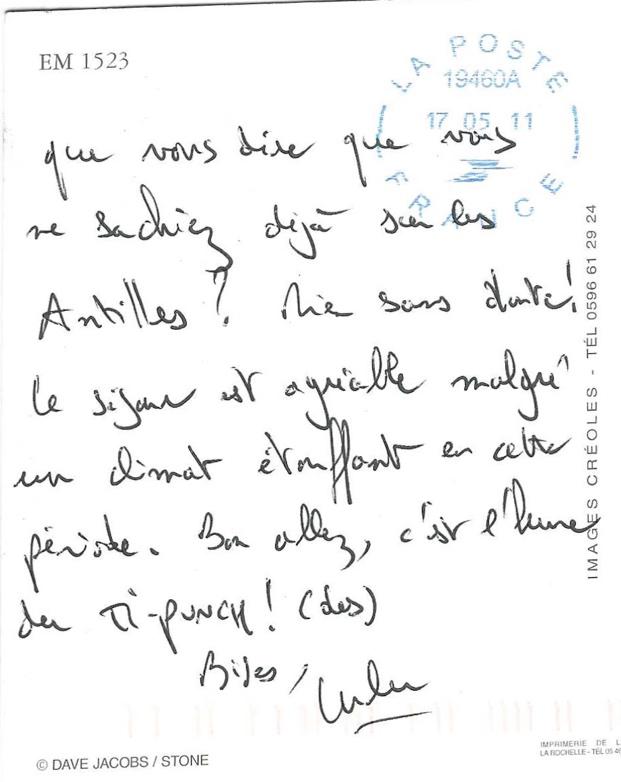 EM 1523
LA POSTE
19460A
17 05 11
FRANCE
que vous dire que vous
ne sachiez déjà sur les
Antilles ? Rien sans doute !
Le séjour est agréable malgré
un climat étouffant en cette
période. Bon allez, c'est l'heure
du Ti-PUNCH ! (des)
Bises,
IMAGES CRÉOLES - TÉL 0596 61 29 24
© DAVE JACOBS / STONE
IMPRIMERIE DE L
LA ROCHELLE - TÉL 05 46